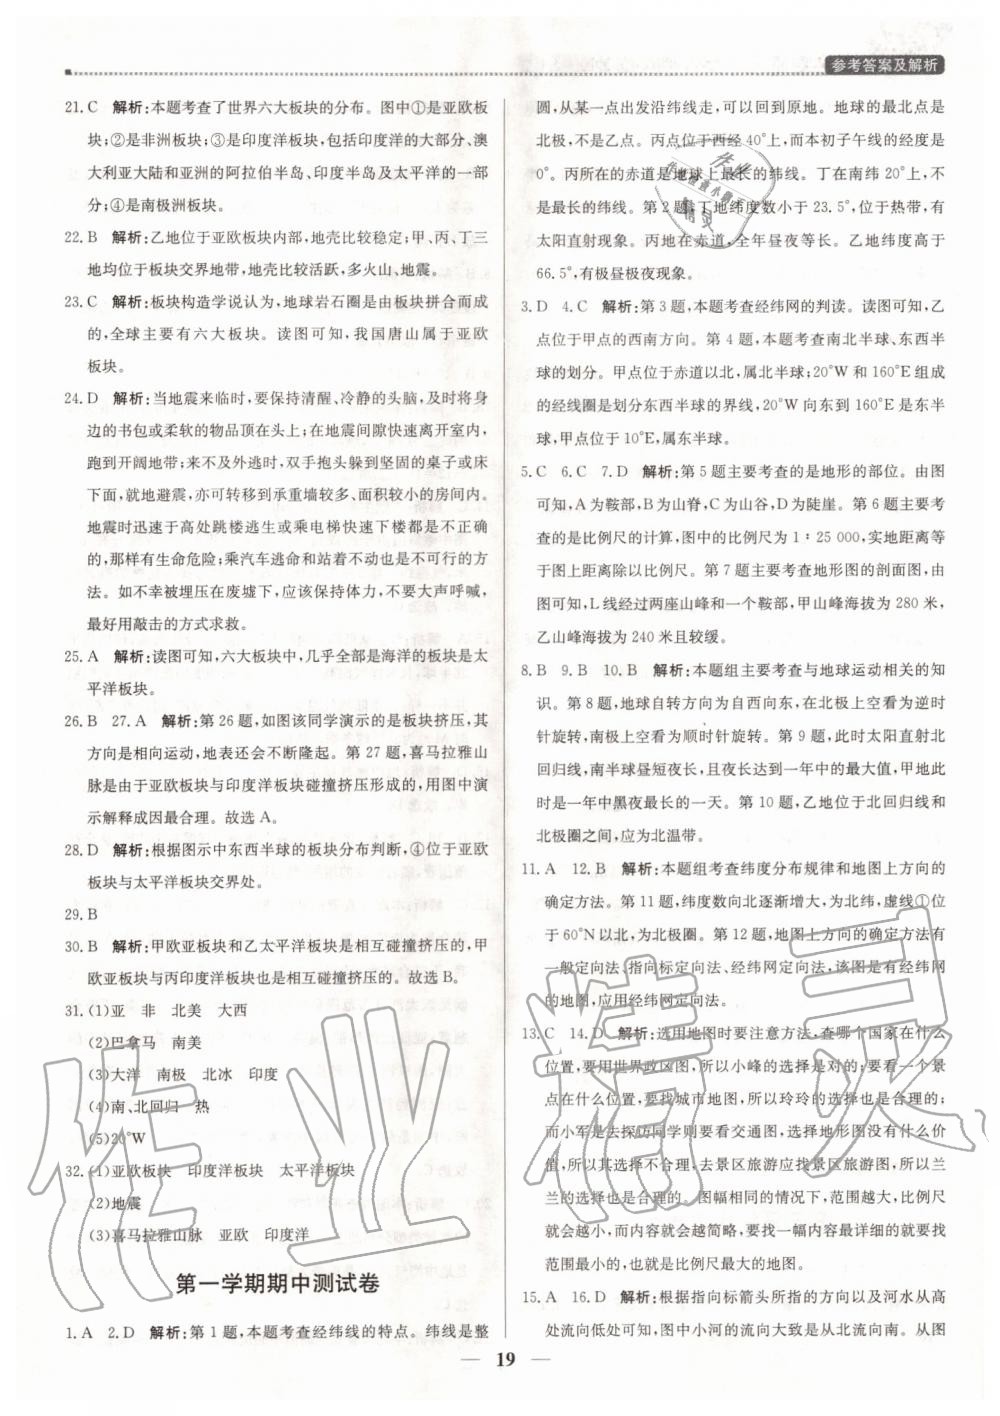 参考答案及解析
21. C　解析:本题考查了世界六大板块的分布。图中①是亚欧板
块;②是非洲板块;③是印度洋板块,包括印度洋的大部分、澳
大利亚大陆和亚洲的阿拉伯半岛、印度半岛及太平洋的一部
分;④是南极洲板块。
22. B　解析:乙地位于亚欧板块内部,地壳比较稳定;甲、丙、丁三
地均位于板块交界地带,地壳比较活跃,多火山、地震。
23. C　解析:板块构造学说认为,地球岩石圈是由板块拼合而成
的,全球主要有六大板块。读图可知,我国唐山属于亚欧
板块。
24. D　解析:当地震来临时,要保持清醒、冷静的头脑,及时将身
边的书包或柔软的物品顶在头上;在地震间隙快速离开室内,
跑到开阔地带;来不及室外逃时,双手抱头躲到坚固的桌子或床
下面,就地避震,亦可转移到承重墙较多、面积较小的房间内。
地震时迅速于高处跳楼逃生或乘电梯快速下楼都是不正确
的,那样有生命危险;乘汽车逃命和站着不动也是不可行的方
法。如不幸被埋压在废墟下,应该保持体力,不要大声呼喊,
最好用敲击的方式求救。
25. A　解析:读图可知,六大板块中,几乎全部是海洋的板块是太
平洋板块。
26. B　27. A　解析:第 26 题,如图该同学演示的是板块挤压,其
方向是相向运动,地表还会不断隆起。第 27 题,喜马拉雅山
脉是由于亚欧板块与印度洋板块碰撞挤压形成的,用图中演
示解释成因最合理。故选 A。
28. D　解析:根据图示中东西半球的板块分布判断,④位于亚欧
板块与太平洋板块交界处。
29. B
30. B　解析:甲欧亚板块和乙太平洋板块是相互碰撞挤压的,甲
欧亚板块与丙印度洋板块也是相互碰撞挤压的。故选 B。
31. (1)亚　非　北美　大西
(2)巴拿马　南美
(3)大洋　南极　北冰　印度
(4)南、北回归　热
(5)20°W
32. (1)亚欧板块　印度洋板块　太平洋板块
(2)地震
(3)喜马拉雅山脉　亚欧　印度洋
第一学期期中测试卷
1. A　2. D　解析:第 1 题,本题考查经纬线的特点。纬线是整
圆,从某一点出发沿纬线走,可以回到原地。地球的最北点是
北极,不是乙点。丙点位于西经 40°上,而本初子午线的经度是
0°。丙所在的赤道是地球上最长的纬线。丁在南纬 20°上,不
是最长的纬线。第 2 题,丁地纬度数小于 23.5°,位于热带,有
太阳直射现象。丙地在赤道,全年昼夜等长。乙地纬度高于
66.5°,有极昼极夜现象。
3. D　4. C　解析:第 3 题,本题考查经纬网的判读。读图可知,乙
点位于甲点的西南方向。第 4 题,本题考查南北半球、东西半
球的划分。甲点位于赤道以北,属北半球;20°W 和 160°E 组成
的经线圈是划分东西半球的界线,20°W 向东到 160°E 是东半
球,甲点位于 10°E,属东半球。
5. C　6. C　7. D　解析:第 5 题主要考查的是地形的部位。由图
可知,A 为鞍部,B 为山脊,C 为山谷,D 为陡崖。第 6 题主要考
查的是比例尺的计算,图中的比例尺为 1∶25 000,实地距离等
于图上距离除以比例尺。第 7 题主要考查地形图的剖面图,由
图可知,L 线经过两座山峰和一个鞍部,甲山峰海拔为 280 米,
乙山峰海拔为 240 米且较缓。
8. B　9. B　10. B　解析:本题组主要考查与地球运动相关的知
识。第 8 题,地球自转方向为自西向东,在北极上空看为逆时
针旋转,南极上空看为顺时针旋转。第 9 题,此时太阳直射北
回归线,南半球昼短夜长,且夜长达到一年中的最大值,甲地此
时是一年中黑夜最长的一天。第 10 题,乙地位于北回归线和
北极圈之间,应为北温带。
11. A　12. B　解析:本题组考查纬度分布规律和地图上方向的
确定方法。第 11 题,纬度数向北逐渐增大,为北纬,虚线①位
于 60°N 以北,为北极圈。第 12 题,地图上方向的确定方法有
一般定向法、指向标定向法、经纬网定向法。有经纬网
的地图,应用经纬网定向法。
13. C　14. D　解析:选用地图时要注意方法,查哪个国家在什么
位置,要用世界政区图,所以小峰的选择是对的;要看一个景
点在什么位置,要找城市地图,所以玲玲的选择也是合理的;
而小军是去探访同学则要看交通图,选择地形图没有什么价
值,所以其选择不合理,去景区旅游应找景区旅游图,所以兰
兰的选择也是合理的。图幅相同的情况下,范围越大,比例尺
就会越小,而内容就会越简略,要找一幅内容最详细的就要找
范围最小的,也就是比例尺最大的地图。
15. A　16. D　解析:根据指向标箭头所指的方向以及河水从高
处流向低处可知,图中小河的流向大致是从北流向南。从图
19
作业精灵